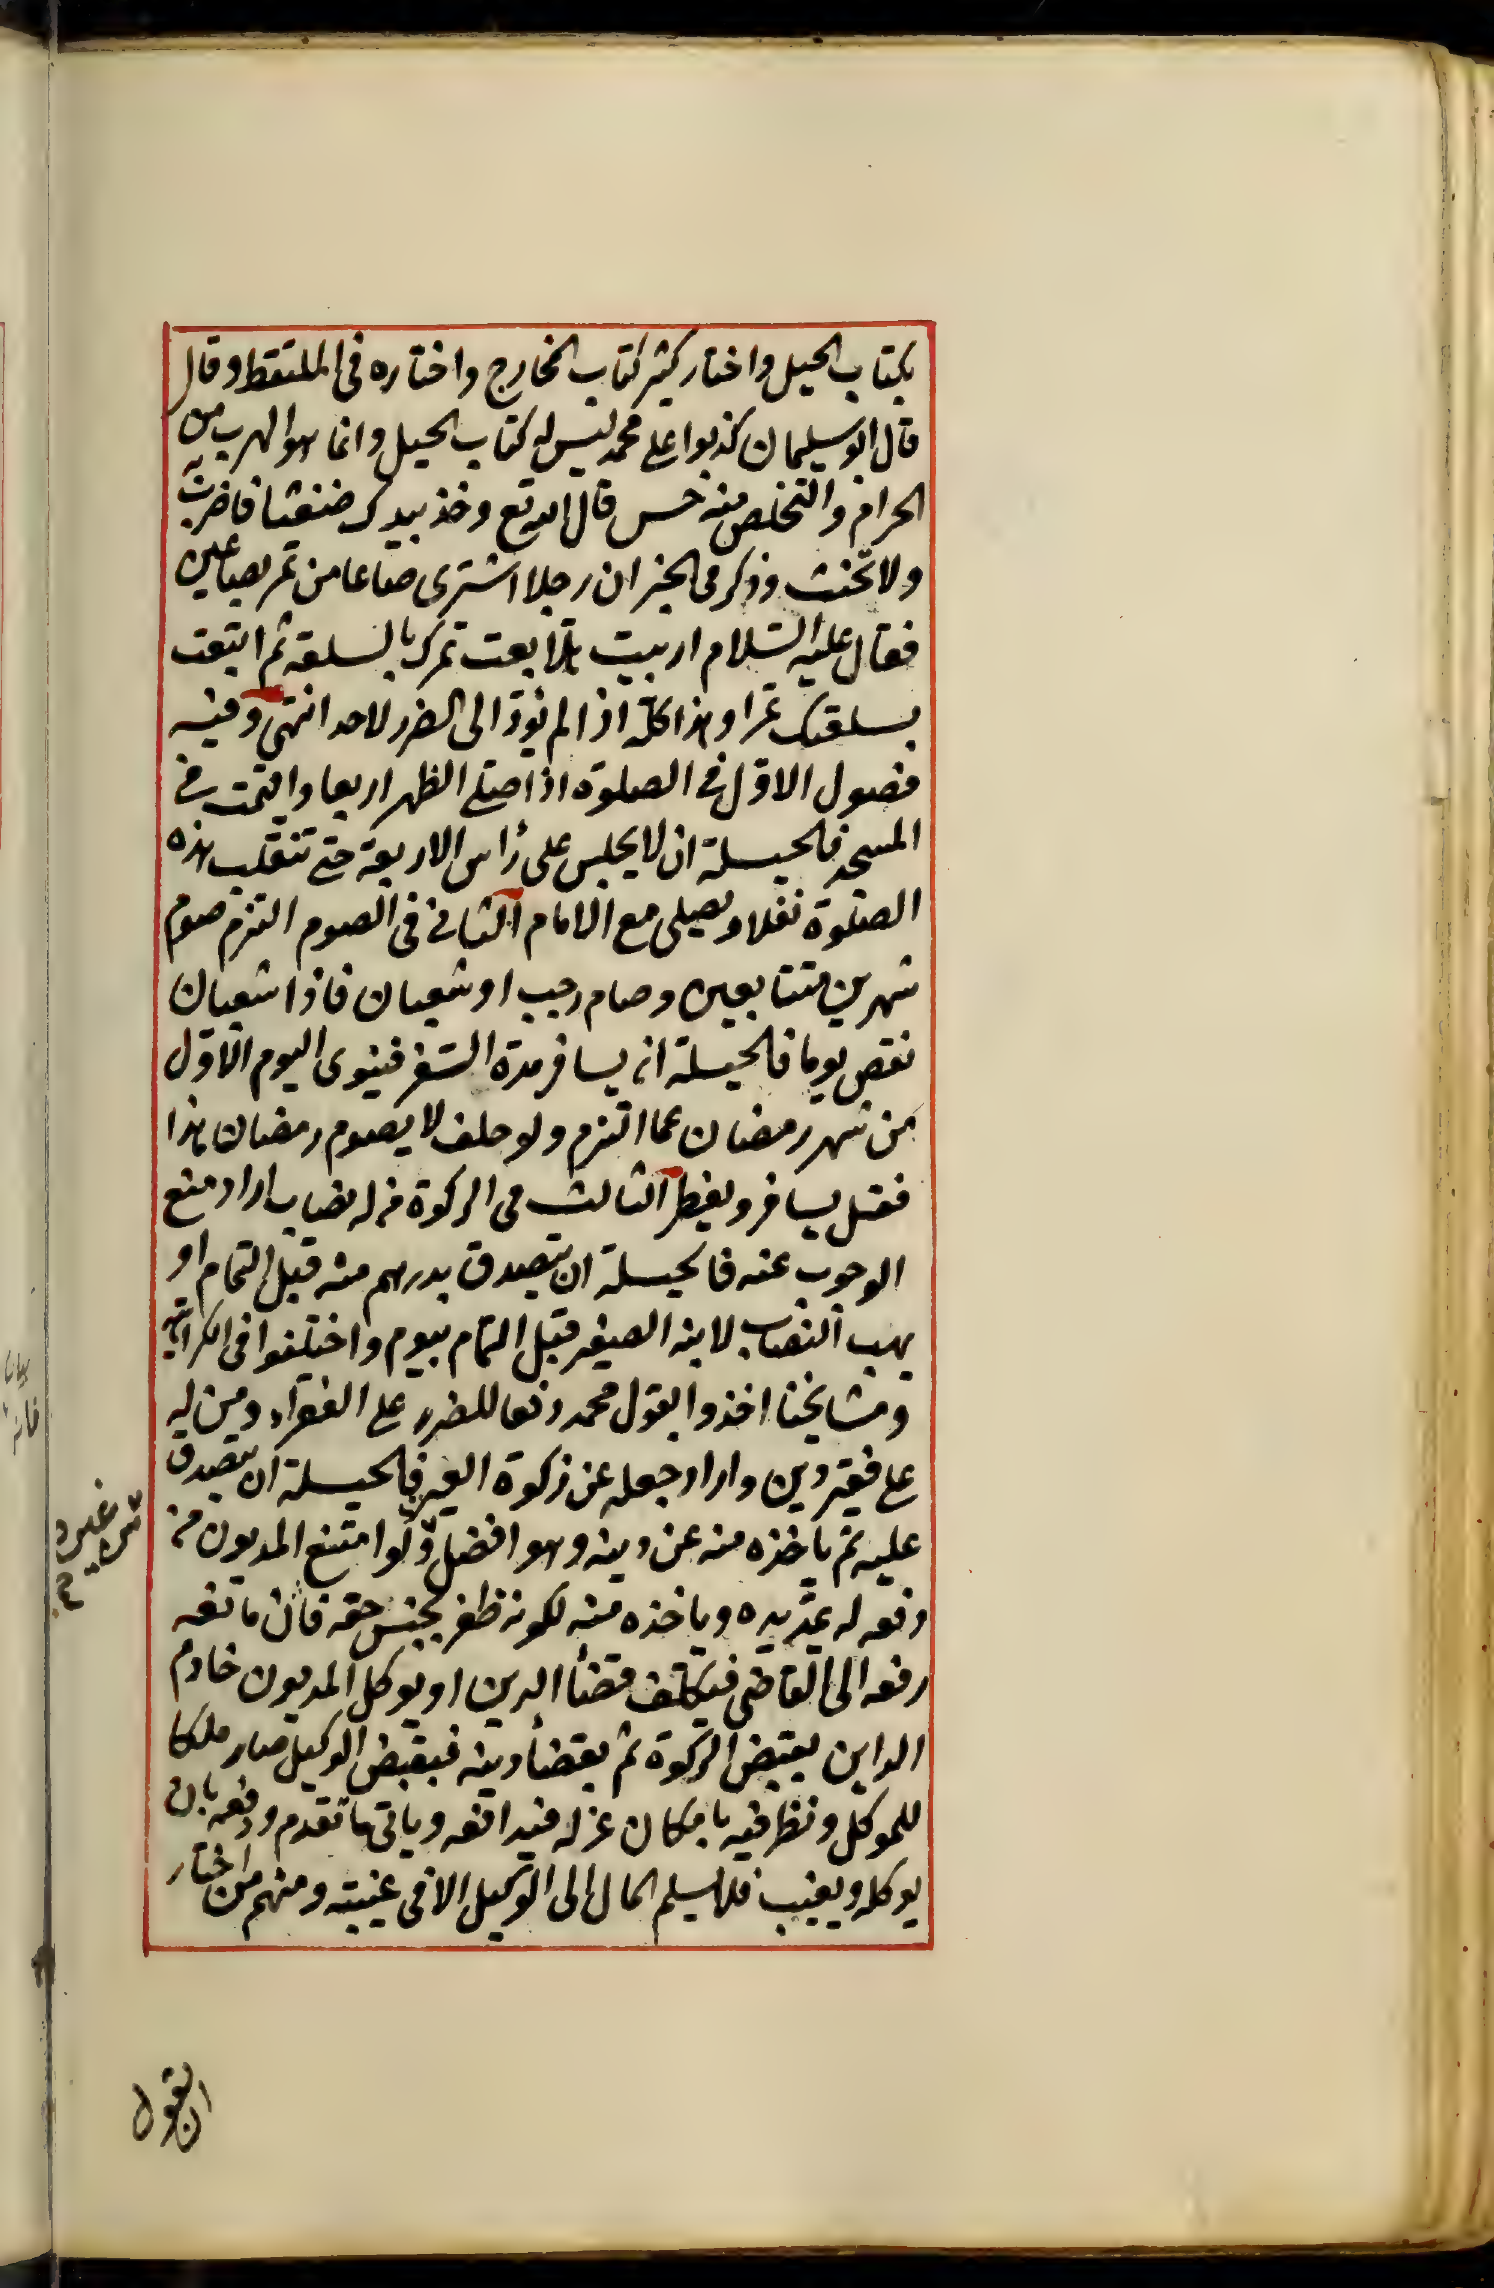 بكتاب الحيل واختار كثير كتاب المخارج واختاره فى الملتقط وقال
قال ابو سليمان كذبوا على محمد ليس له كتاب الحيل وانما هو الهرب من
الحرام والتخلص منه حسن قال الله تع وخذ بيدك ضغثا فاضرب به
ولا تحنث وذكر فى الخبر ان رجلا اشترى صاعا من تمر بصاعين
فقال عليه السلام اربيت هلا بعت تمرك بالسلعة ثم ابتعت
بسلعتك تمرا وهذا كله اذا لم يؤد الى الضرر لاحد انتهى وفيه
فصول الاول فى الصلوة اذا صلى الظهر اربعا واقيمت فى
المسجد فالحيلة ان لا يجلس على رأس الاربعة حتى تنقلب هذه
الصلوة نفلا ويصلى مع الامام الثانى فى الصوم التزم صوم
شهرين متتابعين وصام رجب او شعبان فاذا شعبان
نقص يوما فالحيلة ان يسافر مدة السفر فينوى اليوم الاول
من شهر رمضان عما التزم ولو حلف لا يصوم رمضان هذا
فقيل يسافر ويفطر الثالث فى الزكوة من له نصاب اراد منع
الوجوب عنه فالحيلة ان يتصدق بدرهم منه قبل التمام او
يهب النصاب لابنه الصغير قبل التمام بيوم واختلفوا فى الكراهية
ومشايخنا اخذوا بقول محمد دفعا للضرر على الفقراء ومن له
على فقير دين واراد جعله عن زكوة العين فالحيلة ان يتصدق
عليه ثم ياخذه منه عن دينه وهو افضل ولو امتنع المديون من
دفعه له يمد يده وياخذه منه لكونه ظفر بجنس حقه فان مانعه
رفعه الى القاضى فيكلف قضأ الدين او يوكل المديون خادم
الداين بقبض الزكوة ثم بقضأ دينه فبقبض الوكيل صار ملكا
للموكل ونظر فيه بامكان عزله فيدافعه وياتى ما تقدم ودفعه بان
يوكله ويغيب فلا يسلم المال الى الوكيل الا فى غيبته ومنهم من اختار
من غيره
ان يقول